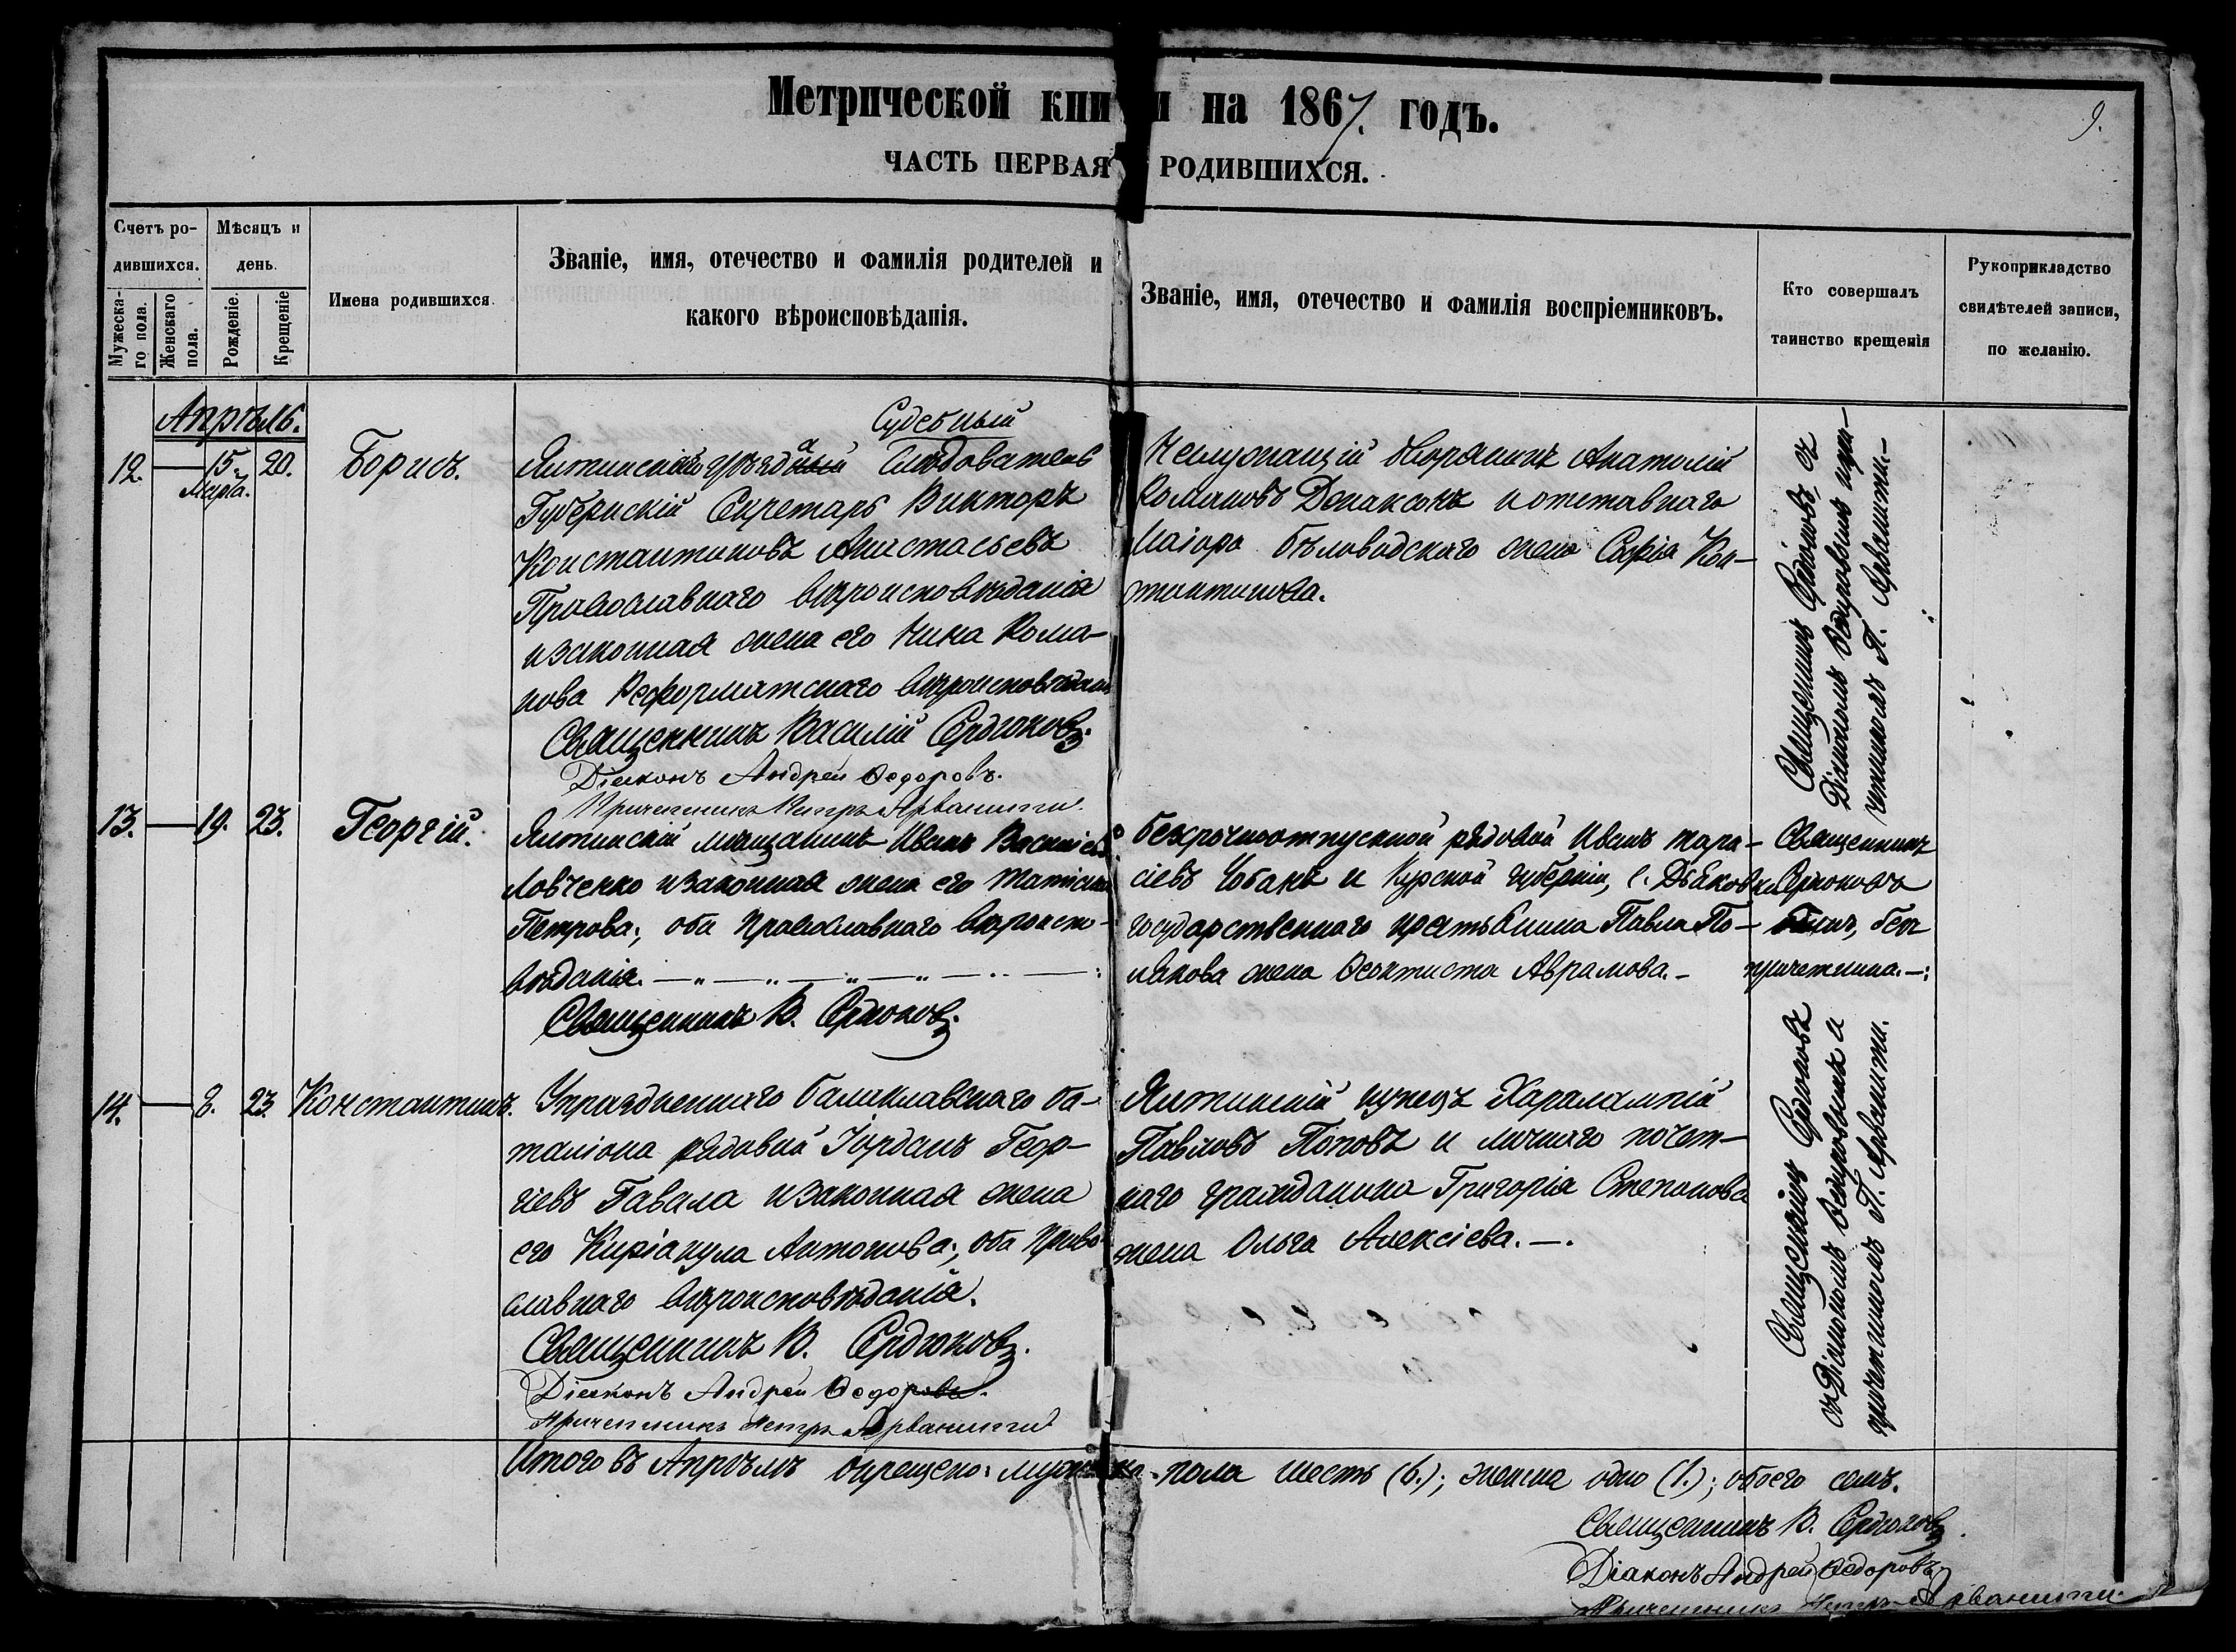 Метрической кни и на 1867. годъ.
9.
ЧАСТЬ ПЕРВАЯ РОДИВШИХСЯ.
Счетъ ро-
дившихся.
Мужеска-
го пола.
Женскаго
пола.
Мѣсяцъ и
день.
Рожденіе.
Крещеніе
Имена родившихся
Званіе, имя, отечество и фамилія родителей и
какого вѣроисповѣданія.
Званіе, имя, отечество и фамилія воспріемниковъ.
Кто совершалъ
таинство крещенія
Рукоприкладство
свидѣтелей записи,
по желанію.
Апрѣль.
12. — 15. 20.
Марта.
Борисъ.
Судебный
Ялтинскій уѣзда Слѣдователь
Губернскій Секретарь Викторъ
Константиновъ Анастасьевъ
Православнаго вѣроисповѣданія
и законная жена его Нина Рома-
нова Реформатскаго вѣроисповѣданія
Священникъ Василій Сердюковъ.
Діаконъ Андрей Ѳедоровъ.
Причетникъ Петръ Арванити.
Неслужащій дворянинъ Анатолій
Романовъ Демаксонъ и отставнаго
Маіора Бѣловодскаго жена Софія Кон-
стантинова.
Священникъ Сердюковъ, съ
Діакономъ Ѳедоровымъ и при-
четникомъ П. Арванити.—
13. — 19. 23.
Георгій.
Ялтинскій мѣщанинъ Иванъ Васильевъ
Ловченко и законная жена его Татіана
Петрова; оба Православнаго вѣроиспо-
вѣданія.
Священникъ В. Сердюковъ.
безсрочноотпускной рядовой Иванъ Тара-
сіевъ Чобанъ и Курской губерніи, с. Дьяковки
государственнаго крестьянина Павла По-
лякова жена Ѳеоктиста Аврамова.—
Священникъ
Сердюковъ
безъ
причетника.—:
14. — 8. 23.
Константинъ.
Упраздненнаго балаклавскаго ба-
таліона рядовой Іорданъ Геор-
гіевъ Гавала и законная жена
его Киріакула Антонова; оба Право-
славнаго вѣроисповѣданія.
Священникъ В. Сердюковъ.
Діаконъ Андрей Ѳедоровъ.
Причетникъ Петръ Арванити
Ялтинскій купецъ Харалампій
Павловъ Поповъ и личнаго почет-
наго гражданина Григорія Степанова
жена Ольга Алексіева.—.
Священникъ Сердюковъ
съ Діакономъ Ѳедоровымъ и
причетникомъ П. Арванити.
Итого въ Апрѣлѣ окрещено: мужеска пола шесть (6.); женска одно (1.); обоего семь.
Священникъ В. Сердюковъ.
Діаконъ Андрей Ѳедоровъ
Причетникъ Петръ Арванити.